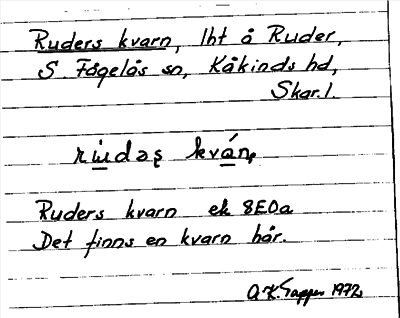 Ruders kvarn, lht å Ruder,
S. Fågelås sn, Kåkinds hd,
Skar. l.
Ruders kvarn ek 8E0a
Det finns en kvarn här.
1972